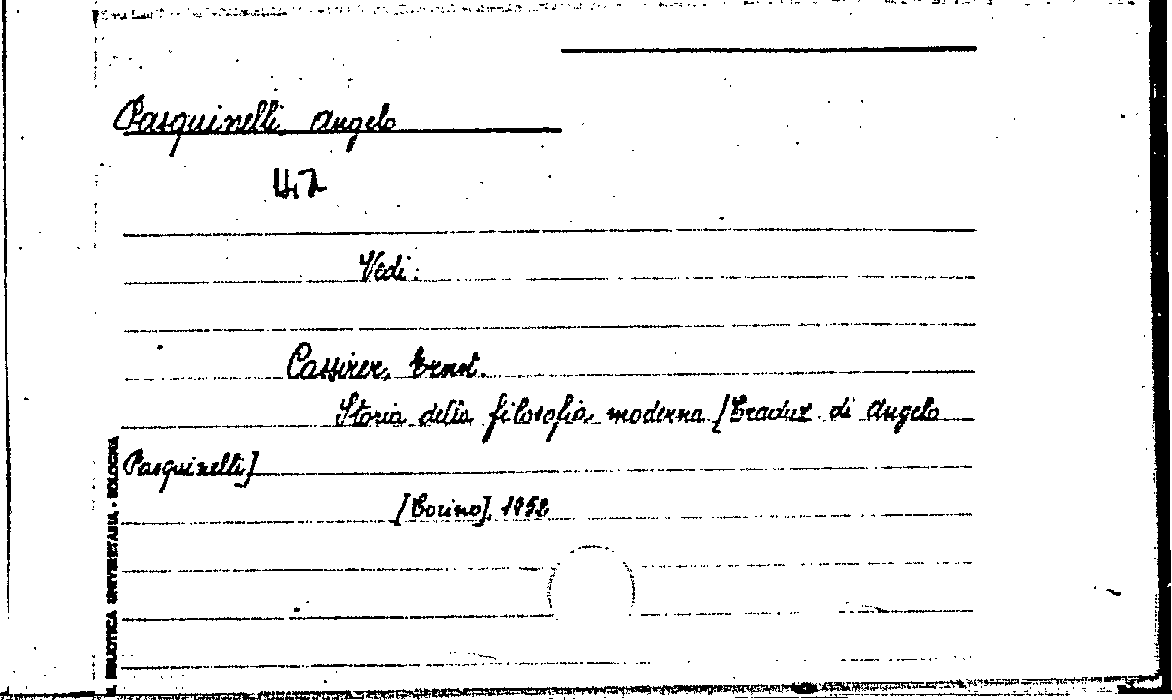 Pasquinelli Angelo
Vedi:
Cassirer, Ernst.
Storia della filosofia moderna [Traduz. di Angelo
Pasquinelli]
[Torino], 1952
BIBLIOTECA UNIVERSITARIA - BOLOGNA